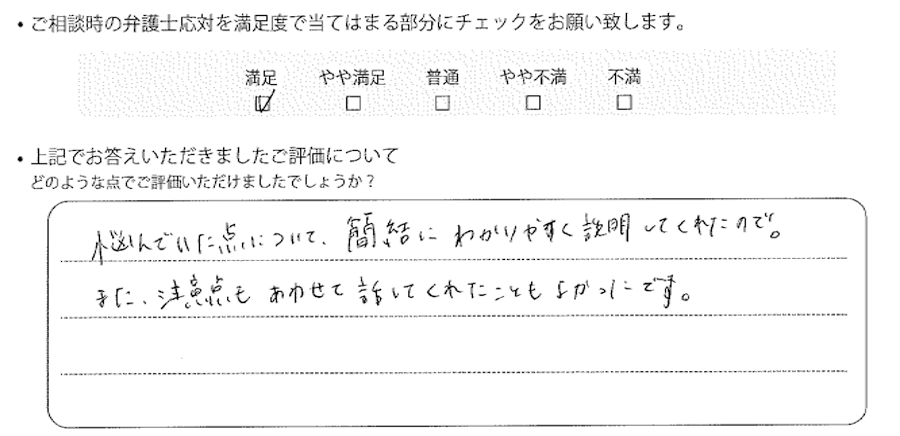 ・ご相談時の弁護士応対を満足度で当てはまる部分にチェックをお願い致します。
満足 やや満足 普通 やや不満 不満
・上記でお答えいただきましたご評価について
どのような点でご評価いただけましたでしょうか？
悩んでいた点について、簡結にわかりやすく説明してくれたので。
また、注意点もあわせて話してくれたこともよかったです。